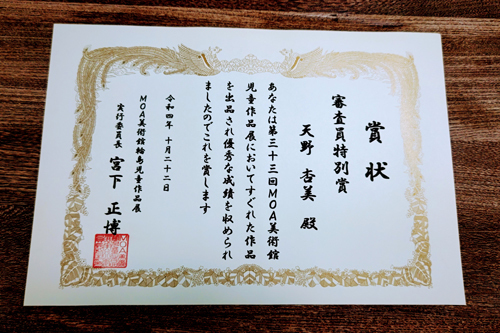 賞状
審査員特別賞
天野 杏美 殿
あなたは第三十三回MOA美術館
児童作品展においてすぐれた作品
を出品され優秀な成績を収められ
ましたのでこれを賞します
令和四年 十月二十二日
MOA美術館輪島児童作品展
実行委員長 宮下 正博